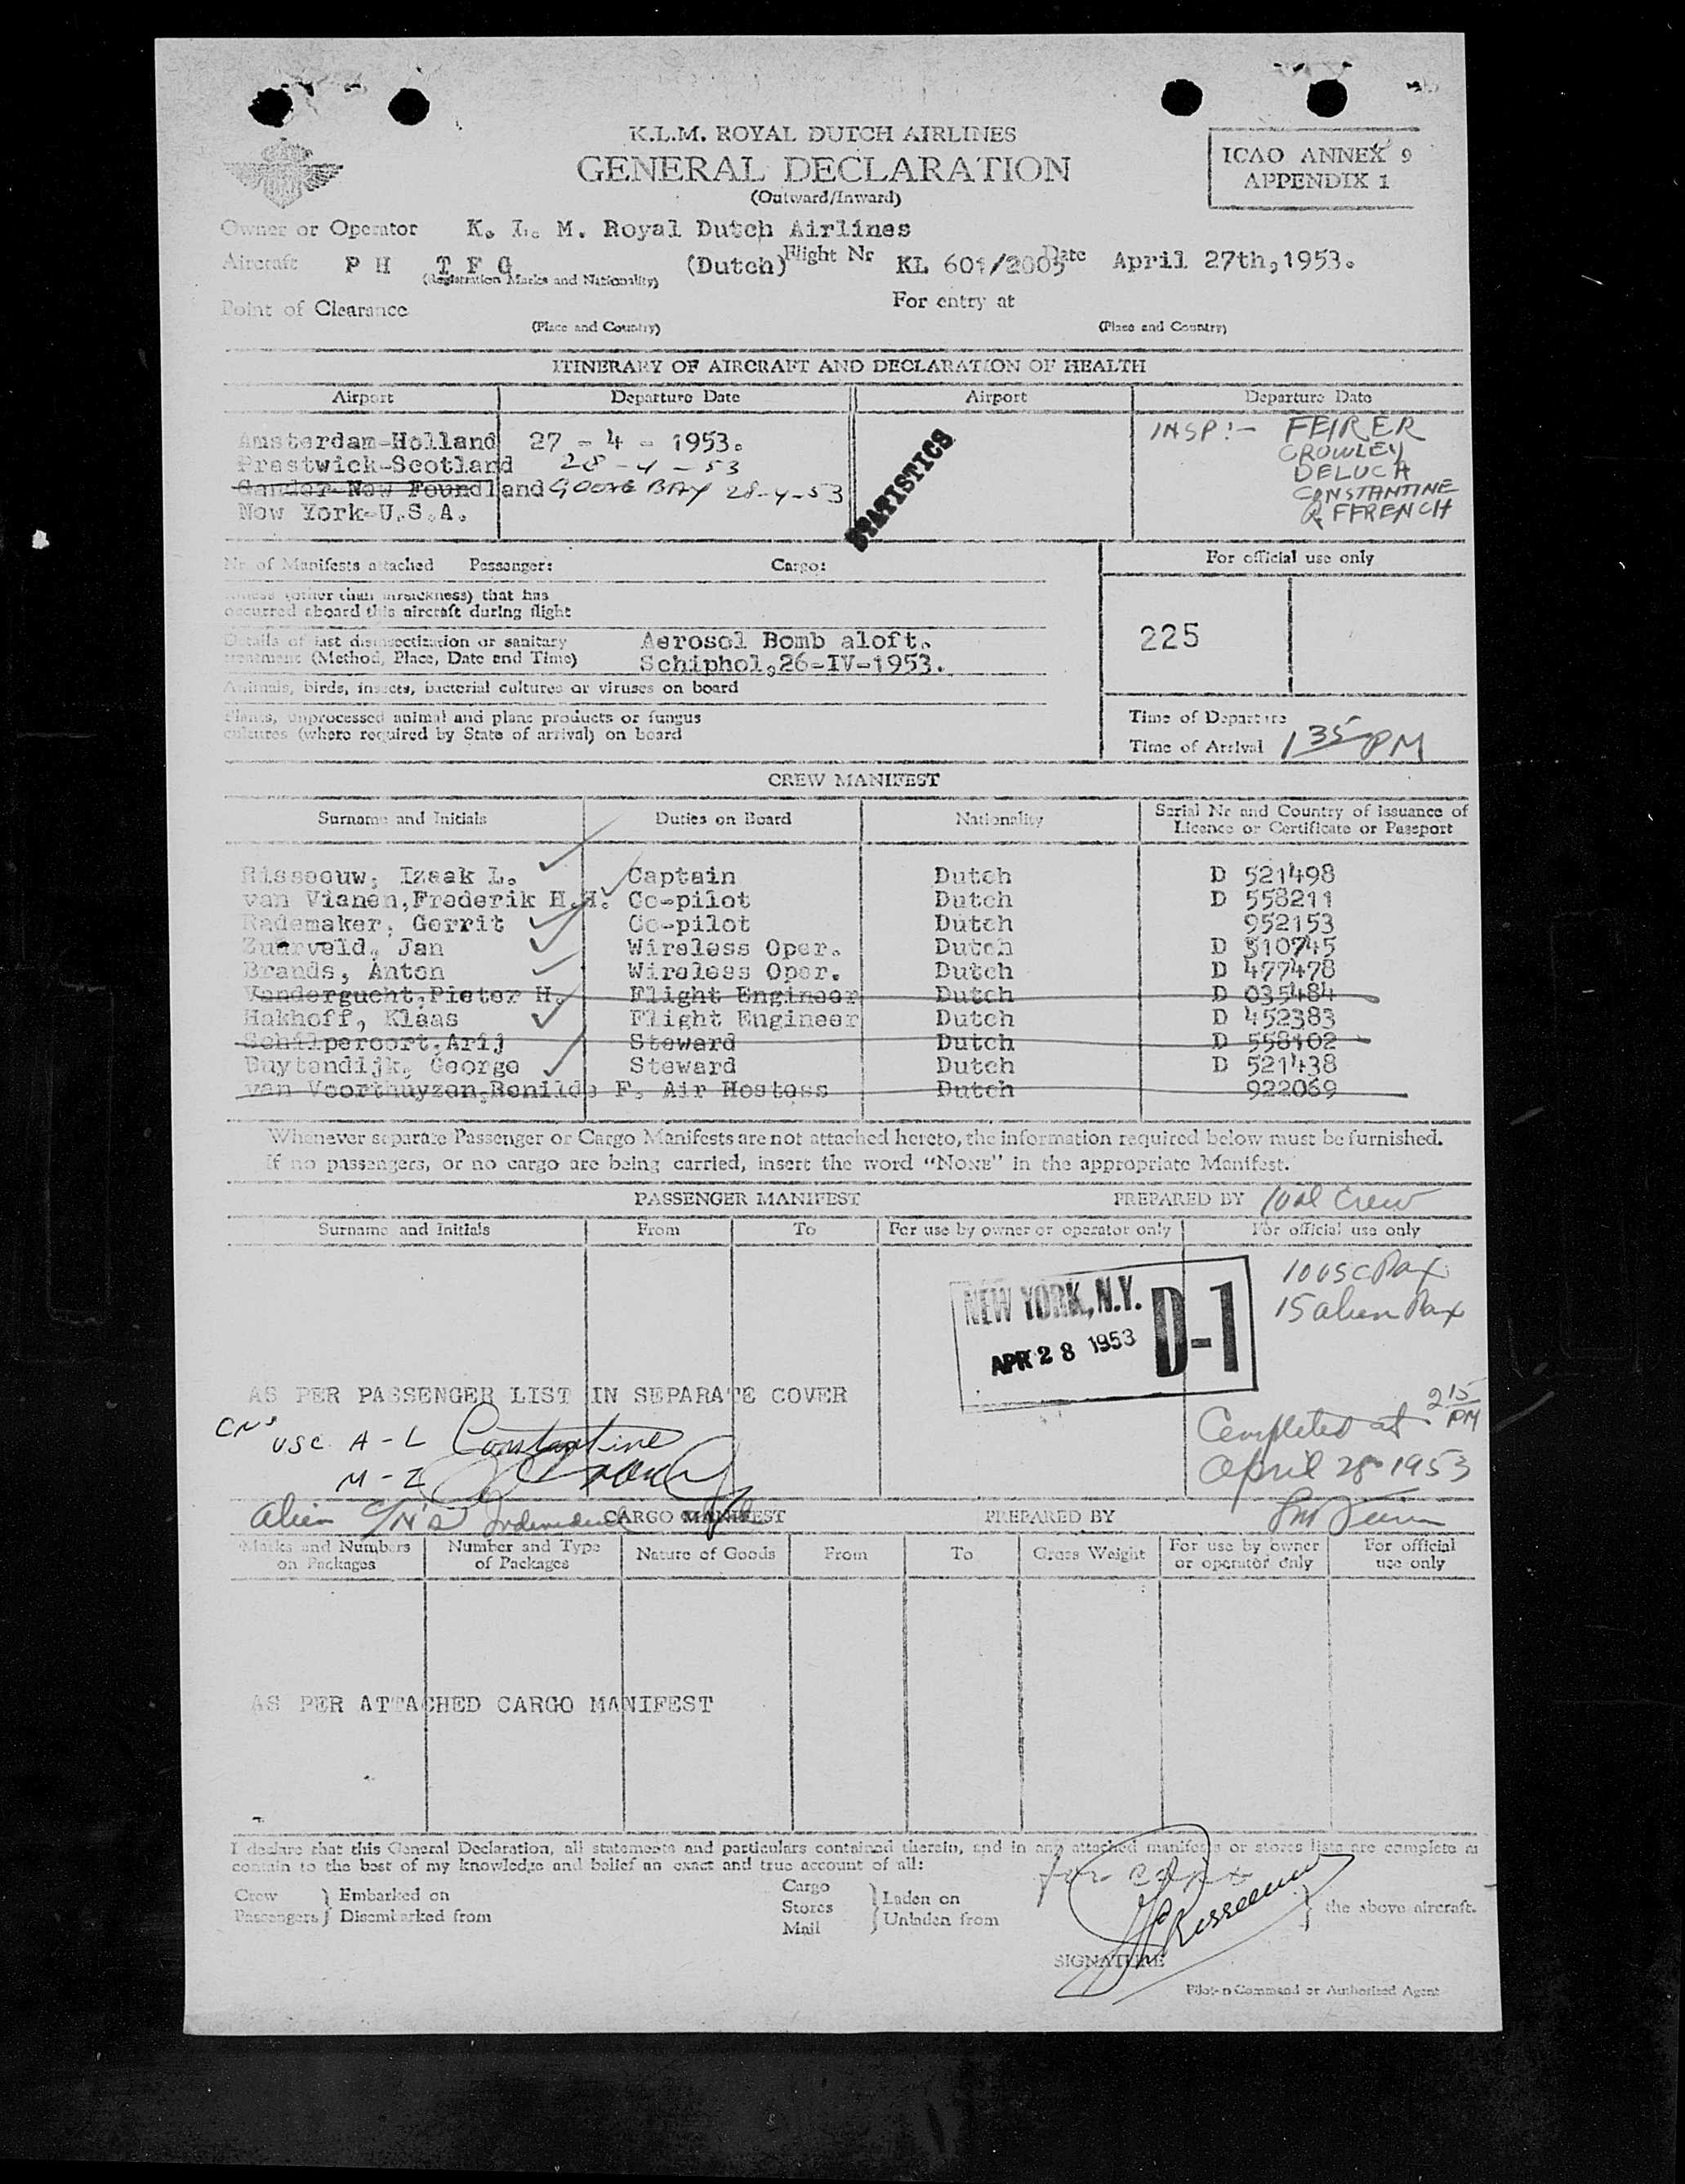 K.L.M. ROYAL DUTCH AIRLINES
GENERAL DECLARATION
(Outward/Inward)
ICAO ANNEX 9
APPENDIX 1
Owner or Operator K. L. M. Royal Dutch Airlines
Aircraft P H T F G (Dutch) Flight Nr KL 601/2005 Date April 27th,1953.
(Registration Marks and Nationality)
Point of Clearance For entry at
(Place and Country) (Place and Country)
ITINERARY OF AIRCRAFT AND DECLARATION OF HEALTH
Airport Departure Date Airport Departure Date
Amsterdam-Holland 27 - 4 - 1953.
Prestwick-Scotland 28-4-53
Gander-New Foundland GOOSE BAY 28-4-53
New York-U.S.A.
STATISTICS
INSP:- FEIRER
CROWLEY
DELUCA
CONSTANTINE
FFRENCH
Nr of Manifests attached Passenger: Cargo:
For official use only
Illness (other than airsickness) that has
occurred aboard this aircraft during flight
Details of last disinsectization or sanitary Aerosol Bomb aloft.
treatment (Method, Place, Date and Time) Schiphol,26-IV-1953.
225
Animals, birds, insects, bacterial cultures or viruses on board
Plants, unprocessed animal and plant products or fungus
cultures (where required by State of arrival) on board
Time of Departure
Time of Arrival 1 35 PM
CREW MANIFEST
Surname and Initials Duties on Board Nationality Serial Nr and Country of Issuance of
Licence or Certificate or Passport
Risseeuw, Izaak L. Captain Dutch D 521498
van Vianen,Frederik H.H. Co-pilot Dutch D 558211
Rademaker, Gerrit Co-pilot Dutch 952153
Zuurveld, Jan Wireless Oper. Dutch D 510745
Brands, Anton Wireless Oper. Dutch D 477478
Vandergucht,Pieter H. Flight Engineer Dutch D 035484
Hakhoff, Klaas Flight Engineer Dutch D 452383
Schilperoort,Arij Steward Dutch D 558102
Buytendijk, George Steward Dutch D 521438
van Voorthuyzen,Renilde F. Air Hostess Dutch 922069
Whenever separate Passenger or Cargo Manifests are not attached hereto, the information required below must be furnished.
If no passengers, or no cargo are being carried, insert the word “NONE” in the appropriate Manifest.
PASSENGER MANIFEST PREPARED BY Crew
Surname and Initials From To For use by owner or operator only For official use only
10 USC Pax
15 alien Pax
NEW YORK, N.Y. D-1
APR 28 1953
AS PER PASSENGER LIST IN SEPARATE COVER
USC A-L Constantine
M-Z
Completed at 2 15 PM
April 28 1953
alien
CARGO MANIFEST PREPARED BY
Marks and Numbers on Packages Number and Type of Packages Nature of Goods From To Gross Weight For use by owner or operator only For official use only
AS PER ATTACHED CARGO MANIFEST
I declare that this General Declaration, all statements and particulars contained therein, and in any attached manifests or stores lists are complete
contain to the best of my knowledge and belief an exact and true account of all:
Crew Passengers } Embarked on Disembarked from
Cargo Stores Mail } Laden on Unladen from
} the above aircraft.
for capt
Risseeuw
SIGNATURE
Pilot-in Command or Authorised Agent